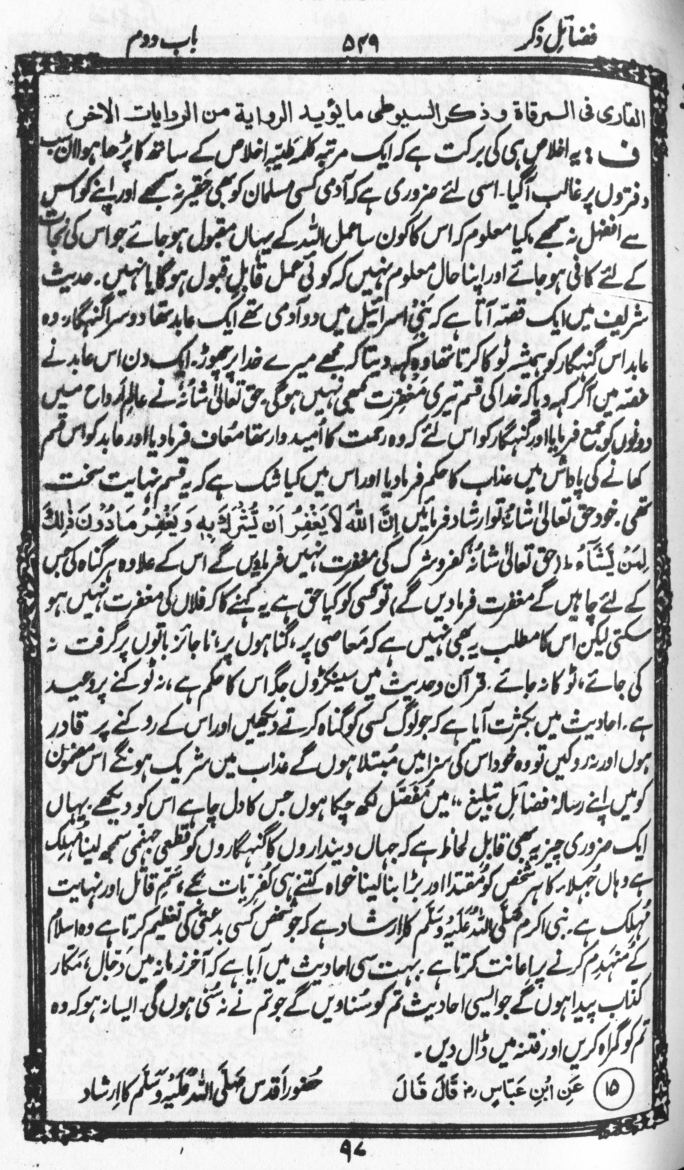 فضائل ذکر ۵۴۹ باب دوم
القاری فی المرقاة وذکر السیوطی مایؤید الروایة من الروایات الاخر)
ف : یہ اخلاص ہی کی برکت ہے کہ ایک مرتبہ کلمہ طیبہ اخلاص کے ساتھ کا پڑھا ہوا ان سب
دفتروں پر غالب آگیا۔ اسی لئے ضروری ہے کہ آدمی کسی مسلمان کو بھی حقیر نہ سمجھے اور اپنے کو اس
سے افضل نہ سمجھے، کیا معلوم کہ اس کا کون سا عمل اللہ کے یہاں مقبول ہو جائے جو اس کی نجات
کے لئے کافی ہو جائے اور اپنا حال معلوم نہیں کہ کوئی عمل قابل قبول ہوگا یا نہیں۔ حدیث
شریف میں ایک قصہ آتا ہے کہ بنی اسرائیل میں دو آدمی تھے ایک عابد تھا دوسرا گنہگار، وہ
عابد اس گنہگار کو ہمیشہ ٹوکا کرتا تھا وہ کہہ دیتا کہ مجھے میرے خدا پر چھوڑ۔ ایک دن اس عابد نے
غصہ میں آکر کہہ دیا کہ خدا کی قسم تیری مغفرت کبھی نہیں ہوگی۔ حق تعالیٰ شانہٗ نے عالم ارواح میں
دونوں کو جمع فرمایا اور گنہگار کو اس لئے کہ وہ رحمت کا امیدوار تھا معاف فرما دیا اور عابد کو اس قسم
کھانے کی پاداش میں عذاب کا حکم فرما دیا اور اس میں کیا شک ہے کہ یہ قسم نہایت سخت
تھی۔ خود حق تعالیٰ شانہٗ تو ارشاد فرمائیں اِنَّ اللّٰهَ لَا یَغْفِرُ اَنْ یُّشْرَكَ بِهٖ وَ یَغْفِرُ مَا دُوْنَ ذٰلِكَ
لِمَنْ یَّشَآءُ ط (حق تعالیٰ شانہٗ کفر و شرک کی مغفرت نہیں فرماویں گے اس کے علاوہ ہر گناہ کی جس
کے لئے چاہیں گے مغفرت فرما دیں گے) تو کسی کو کیا حق ہے یہ کہنے کا کہ فلاں کی مغفرت نہیں ہو
سکتی لیکن اس کا مطلب یہ بھی نہیں ہے کہ معاصی پر، گناہوں پر، ناجائز باتوں پر گرفت نہ
کی جائے، ٹوکا نہ جائے۔ قرآن و حدیث میں سینکڑوں جگہ اس کا حکم ہے، نہ ٹوکنے پر وعید
ہے۔ احادیث میں بکثرت آیا ہے کہ جو لوگ کسی کو گناہ کرتے دیکھیں اور اس کے روکنے پر قادر
ہوں اور نہ روکیں تو وہ خود اس کی سزا میں مبتلا ہوں گے عذاب میں شریک ہونگے اس مضمون
کو میں اپنے رسالہ فضائل تبلیغ ،، میں مفصل لکھ چکا ہوں جس کا دل چاہے اس کو دیکھے۔ یہاں
ایک ضروری چیز یہ بھی قابل لحاظ ہے کہ جہاں دینداروں کا گنہگاروں کو قطعی جہنمی سمجھ لینا مہلک
ہے وہاں جہلا کا ہر شخص کو مقتدا اور بڑا بنا لینا خواہ کتنے ہی کفریات بکے، سم قاتل اور نہایت
مہلک ہے۔ نبی اکرم صَلَّی اللّٰهُ عَلَیْهِ وَسَلَّم کا ارشاد ہے کہ جو شخص کسی بدعتی کی تعظیم کرتا ہے وہ اسلام
کے منہدم کرنے پر اعانت کرتا ہے۔ بہت سی احادیث میں آیا ہے کہ آخر زمانہ میں دجال، مکار
کذاب پیدا ہوں گے جو ایسی احادیث تم کو سناویں گے جو تم نے نہ سنی ہوں گی۔ ایسا نہ ہو کہ وہ
تم کو گمراہ کریں اور فتنہ میں ڈال دیں۔
(۱۵) عَنِ ابْنِ عَبَّاسٍ رض قَالَ قَالَ حضور اقدس صَلَّی اللّٰهُ عَلَیْهِ وَسَلَّم کا ارشاد
۹۷